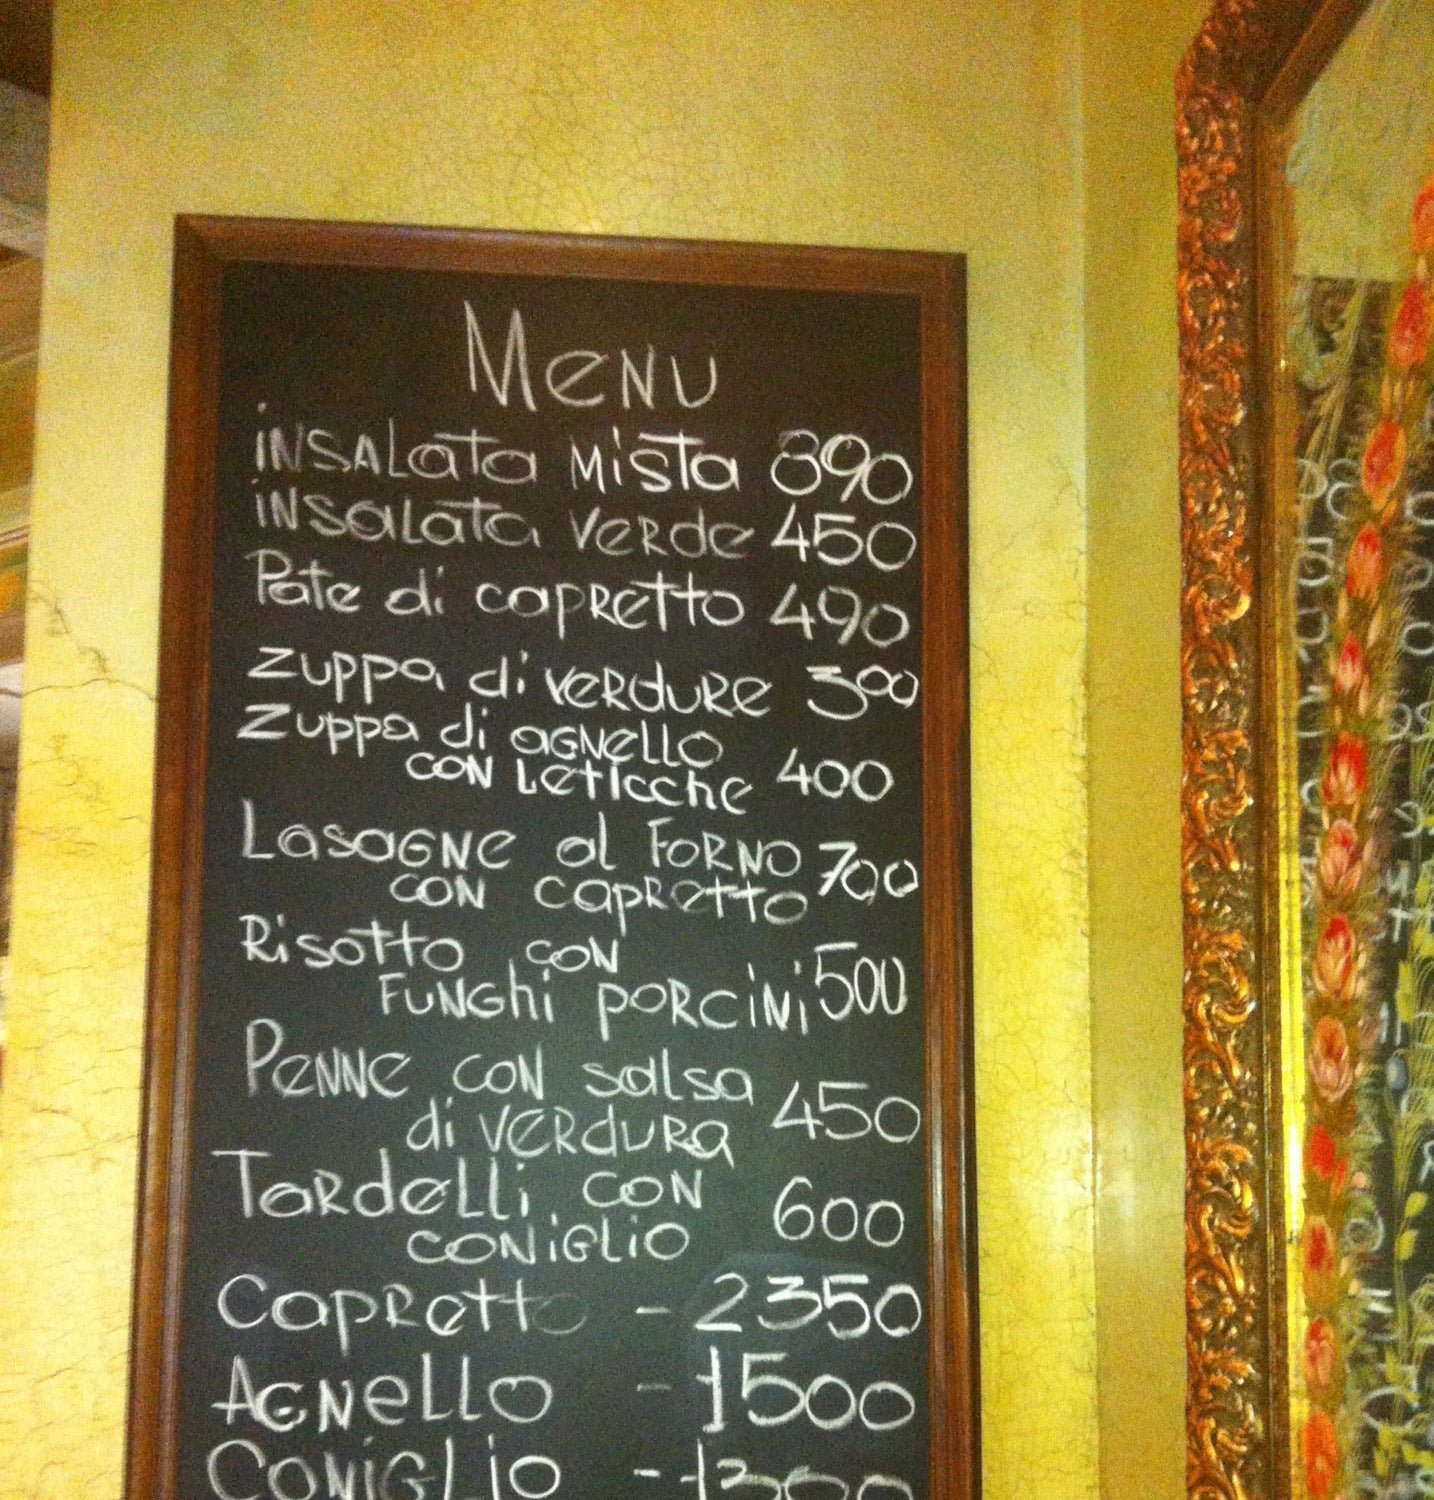 Menu
iNSALata Mista 890
iNSaLata VeRde 450
Pate di capRetto 490
Zuppa di VeRduRe 300
Zuppa di aGNeLLO
CON Leticche 400
LasaGNe al FoRNO 700
CON capRetto
Risotto CON
FuNGhi poRciNi 500
PeNNe CON salsa
di VeRduRa 450
TaRdeLLi CON
CONiGLiO 600
CapRetto - 2350
AGNeLLO - 1500
CONiGLiO - 1300